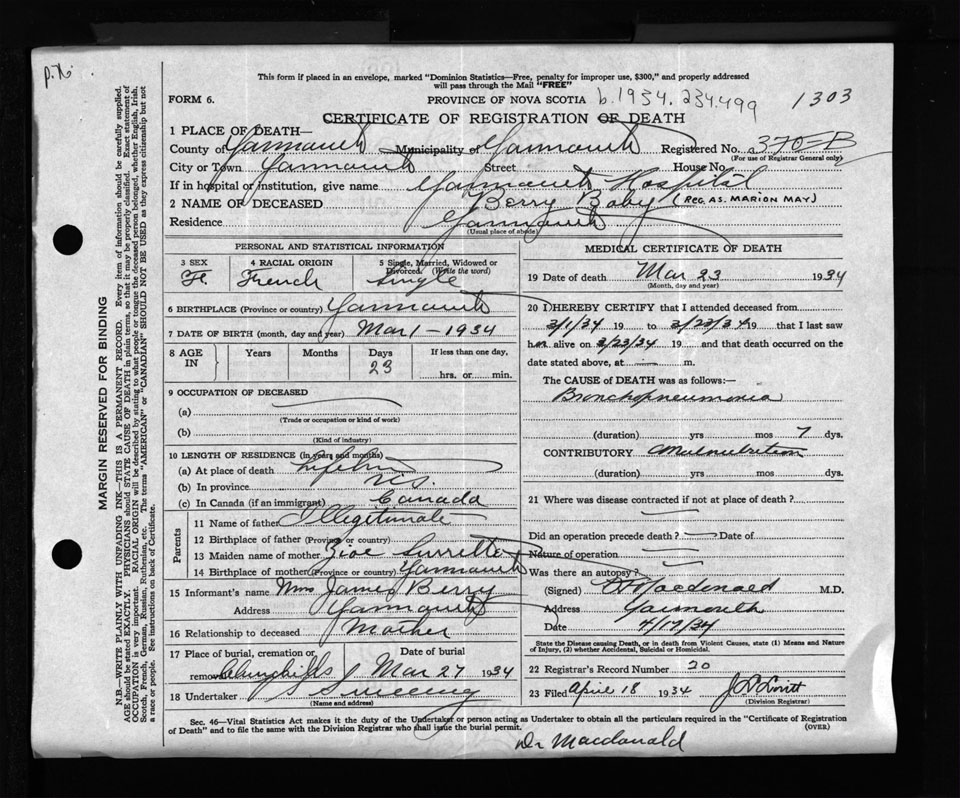 p.x.
This form if placed in an envelope, marked "Dominion Statistics—Free, penalty for improper use, $300," and properly addressed
will pass through the Mail "FREE"
FORM 6.
PROVINCE OF NOVA SCOTIA b.1934.234.499 1303
CERTIFICATE OF REGISTRATION OF DEATH
1 PLACE OF DEATH—
County of Yarmouth Municipality of Yarmouth Registered No. 370-B
(For use of Registrar General only)
City or Town Yarmouth Street House No.
If in hospital or institution, give name Yarmouth Hospital
2 NAME OF DECEASED Berry Baby (REG. AS. MARION MAY)
Residence Yarmouth
(Usual place of abode)
PERSONAL AND STATISTICAL INFORMATION
3 SEX 4 RACIAL ORIGIN 5 Single, Married, Widowed or Divorced (Write the word)
F. French Single
6 BIRTHPLACE (Province or country) Yarmouth
7 DATE OF BIRTH (month, day and year) Mar 1 - 1934
8 AGE IN Years Months Days If less than one day,
23 hrs. or min.
9 OCCUPATION OF DECEASED
(a)
(Trade or occupation or kind of work)
(b)
(Kind of industry)
10 LENGTH OF RESIDENCE (in years and months)
(a) At place of death Lifetime
(b) In province N.S.
(c) In Canada (if an immigrant) Canada
Parents
11 Name of father Illegitimate
12 Birthplace of father (Province or country)
13 Maiden name of mother Zioe Surrette
14 Birthplace of mother (Province or country) Yarmouth
15 Informant's name Mrs James Berry
Address Yarmouth
16 Relationship to deceased Mother
17 Place of burial, cremation or removal Date of burial
Churchills Mar 27 1934
18 Undertaker S Sweeney
(Name and address)
MEDICAL CERTIFICATE OF DEATH
19 Date of death Mar 23 1934
(Month, day and year)
20 I HEREBY CERTIFY that I attended deceased from
3/1/34 19 to 3/23/34 19 that I last saw
h alive on 3/23/34 19 and that death occurred on the
date stated above, at m.
The CAUSE of DEATH was as follows:—
Bronchopneumonia
(duration) yrs mos 7 dys.
CONTRIBUTORY Malnutrition
(duration) yrs mos dys.
21 Where was disease contracted if not at place of death?
Did an operation precede death? Date of
Nature of operation
Was there an autopsy?
(Signed) Macdonald M.D.
Address Yarmouth
Date 4/17/34
State the Disease causing Death, or in death from Violent Causes, state (1) Means and Nature
of Injury, (2) whether Accidental, Suicidal or Homicidal.
22 Registrar's Record Number 20
23 Filed April 18 1934
(Division Registrar)
Sec. 46—Vital Statistics Act makes it the duty of the Undertaker or person acting as Undertaker to obtain all the particulars required in the "Certificate of Registration
of Death" and to file the same with the Division Registrar who shall issue the burial permit. (OVER)
Dr Macdonald
MARGIN RESERVED FOR BINDING
N.B.—WRITE PLAINLY WITH UNFADING INK—THIS IS A PERMANENT RECORD. Every item of information should be carefully supplied.
AGE should be stated EXACTLY. PHYSICIANS should STATE CAUSE OF DEATH in plain terms, so that it may be properly classified. Exact statement of
OCCUPATION is very important. RACIAL ORIGIN will be described by stating to what people or tongue the deceased person belonged, whether English, Irish,
Scotch, French, German, Russian, Ruthenian, etc. The terms "AMERICAN" or "CANADIAN" SHOULD NOT BE USED as they express citizenship but not
a race or people. See instructions on back of Certificate.